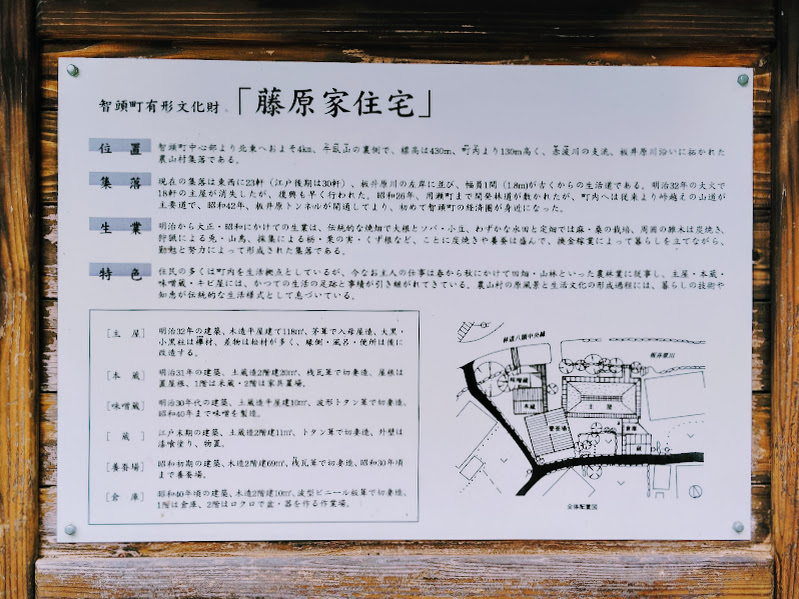 智頭町有形文化財 「藤原家住宅」
位置 智頭町中心部より北東へおよそ4km、牛臥山の裏側で、標高は430m、町内より130m高く、赤波川の支流、板井原川沿いに拓かれた
農山村集落である。
集落 現在の集落は東西に23軒(江戸後期は30軒)、板井原川の左岸に並び、幅員1間(1.8m)が古くからの生活道である。明治32年の大火で
18軒の主屋が消失したが、復興も早く行われた。昭和26年、用瀬町まで開発林道が敷かれたが、町内へは従来より峠越えの山道が
主要道で、昭和42年、板井原トンネルが開通してより、初めて智頭町の経済圏が身近になった。
生業 明治から大正・昭和にかけての生業は、伝統的な焼畑で大根とソバ・小豆、わずかな水田と定畑では麻・桑の栽培、周囲の雑木は炭焼き、
狩猟による兎・山鳥、採集による栃・栗の実・くず根など、ことに炭焼きや養蚕は盛んで、換金稼業によって暮らしを立てながら、
勤勉と努力によって形成された集落である。
特色 住民の多くは町内を生活拠点としているが、今なお主人の仕事は春から秋にかけて田畑・山林といった農林業に従事し、主屋・本蔵・
味噌蔵・キビ屋には、かつての生活の足跡と事績が引き継がれてきている。農山村の原風景と生活文化の形成過程には、暮らしの技術や
知恵が伝統的な生活様式として息づいている。
[主屋] 明治32年の建築、木造平屋建て118㎡、茅葺で入母屋造、大黒・
小黒柱は欅材、差物は松材が多く、縁側・風呂・便所は後に
改造する。
[本蔵] 明治31年の建築、土蔵造2階建20㎡、桟瓦葺で切妻造、屋根は
置屋根、1階は米蔵・2階は家具置場。
[味噌蔵] 明治30年代の建築、土蔵造平屋建10㎡、波形トタン葺で切妻造、
昭和40年まで味噌を製造。
[蔵] 江戸末期の建築、土蔵造2階建11㎡、トタン葺で切妻造、外壁は
漆喰塗り、物置。
[養蚕場] 昭和初期の建築、木造2階建69㎡、桟瓦葺で切妻造、昭和30年頃
まで養蚕場。
[倉庫] 昭和40年頃の建築、木造2階建10㎡、波型ビニール板葺で切妻造、
1階は倉庫、2階はロクロで盆・器を作る作業場。
林道八頭中央線
板井原川
味噌蔵
本蔵
主屋
養蚕場
倉庫
蔵
全体配置図